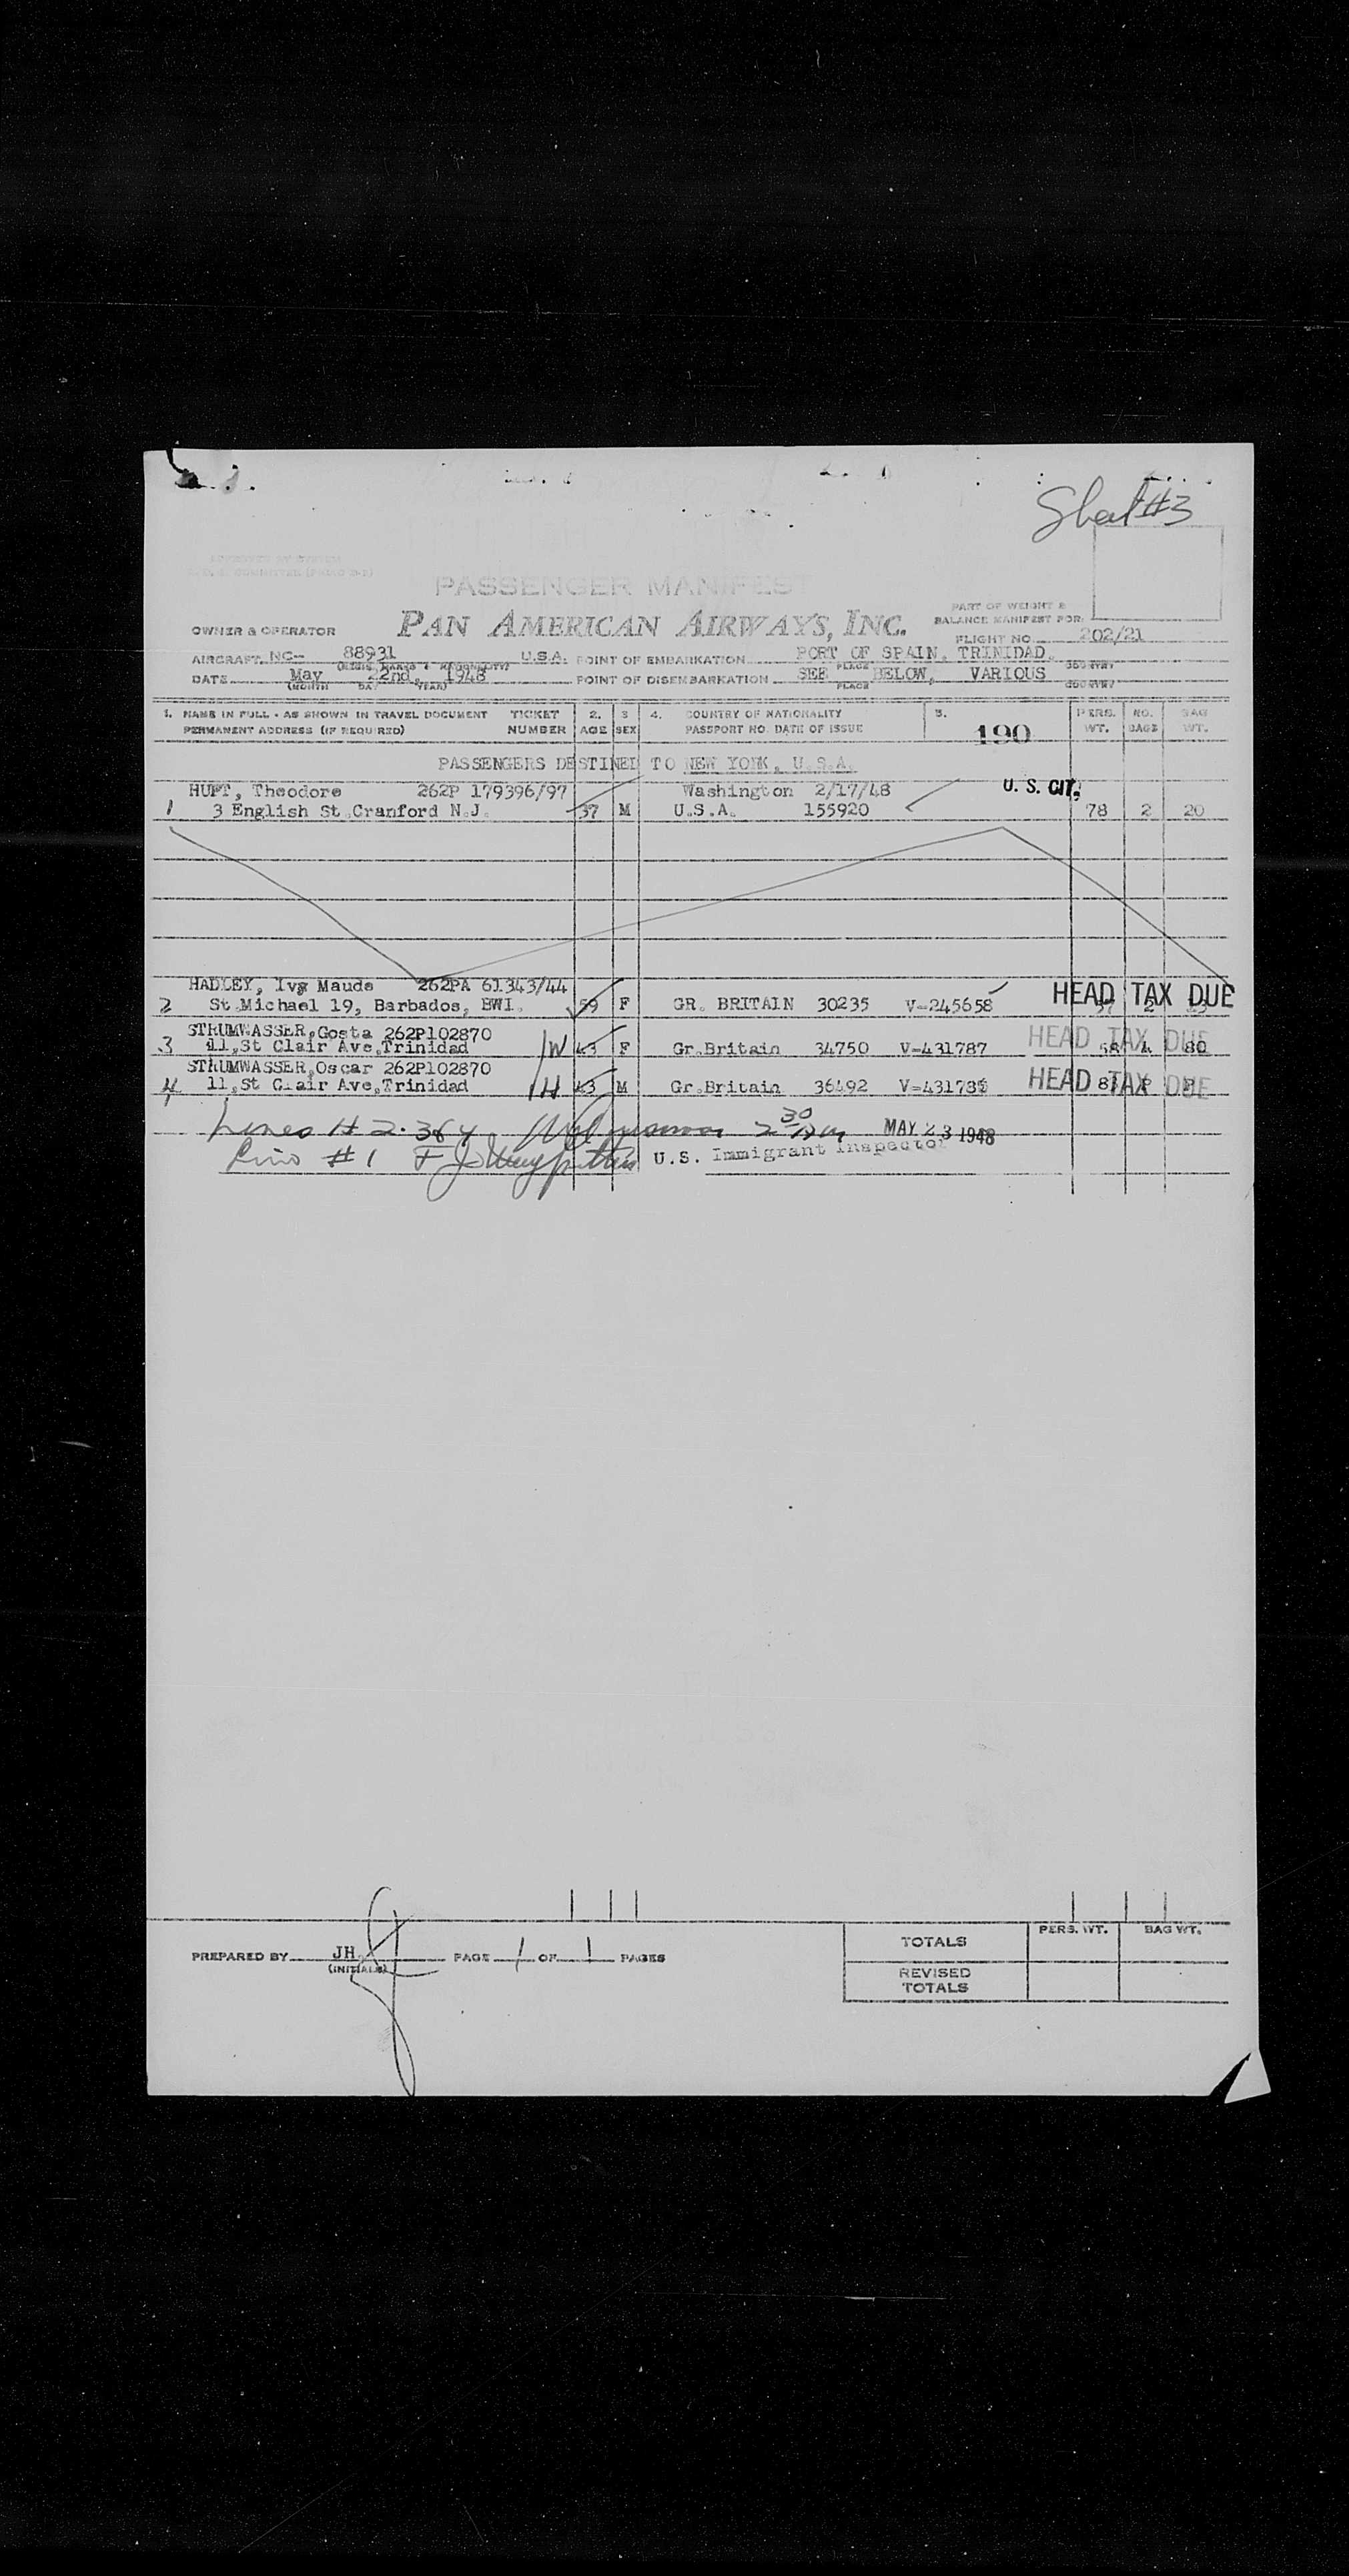 Sheet #3
PASSENGER MANIFEST
PART OF WEIGHT &
BALANCE MANIFEST FOR:
OWNER & OPERATOR PAN AMERICAN AIRWAYS, INC.
FLIGHT NO. 202/21
AIRCRAFT NC- 88931 U.S.A. POINT OF EMBARKATION PORT OF SPAIN, TRINIDAD.
PLACE COUNTRY
DATE May 22nd, 1948 POINT OF DISEMBARKATION SEE BELOW, VARIOUS
(MONTH DAY YEAR) PLACE COUNTRY
1. NAME IN FULL - AS SHOWN IN TRAVEL DOCUMENT TICKET 2. 3 4. COUNTRY OF NATIONALITY 5. PERS. NO. BAG
PERMANENT ADDRESS (IF REQUIRED) NUMBER AGE SEX PASSPORT NO. DATE OF ISSUE 190 WT. BAGS WT.
PASSENGERS DESTINED TO NEW YORK, U.S.A.
HUPT, Theodore 262P 179396/97 Washington 2/17/48 U. S. CIT.
1 3 English St.Cranford N.J. 37 M U.S.A. 155920 78 2 20
HADLEY, Iva Maude 262PA 61343/44
2 St.Michael 19, Barbados, BWI. 59 F GR. BRITAIN 30235 V-245658 HEAD TAX DUE
STRUMWASSER,Gosta 262P102870
3 11,St Clair Ave.Trinidad W 43 F Gr.Britain 34750 V-431787 HEAD TAX DUE 80
STRUMWASSER,Oscar 262P102870
4 11,St Clair Ave,Trinidad H 43 M Gr.Britain 36492 HEAD TAX DUE
Lines # 2·3&4 2 30 AM MAY 23 1948
#1 U.S. Immigrant Inspector
PREPARED BY JH PAGE 1 OF 1 PAGES
(INITIALS)
PERS. WT. BAG WT.
TOTALS
REVISED
TOTALS